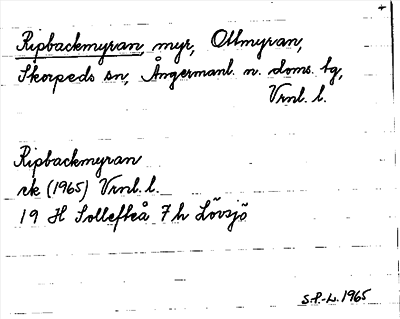 +
Ripbackmyran, myr, Ollmyran,
Skorpeds sn, Ångermanl. n. doms. bg,
Vrnl. l.
Ripbackmyran
rk (1965) Vrnl. l.
19 H Sollefteå 7 h Lövsjö
S.P-L. 1965